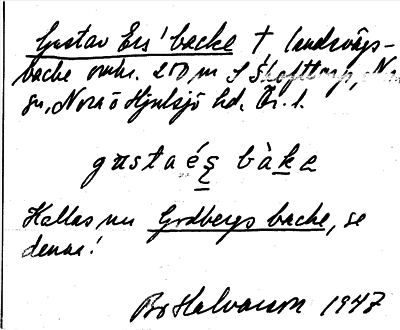 Gustav Ers' backe †, landsvägs-
backe omkr. 250 m S Skofttorp, No
sn, Nora o Hjulsjö hd, Ör. l.
gustaęs bàka
Kallas nu Godbergs backe, se
denna!
Bo Halvarson 1947